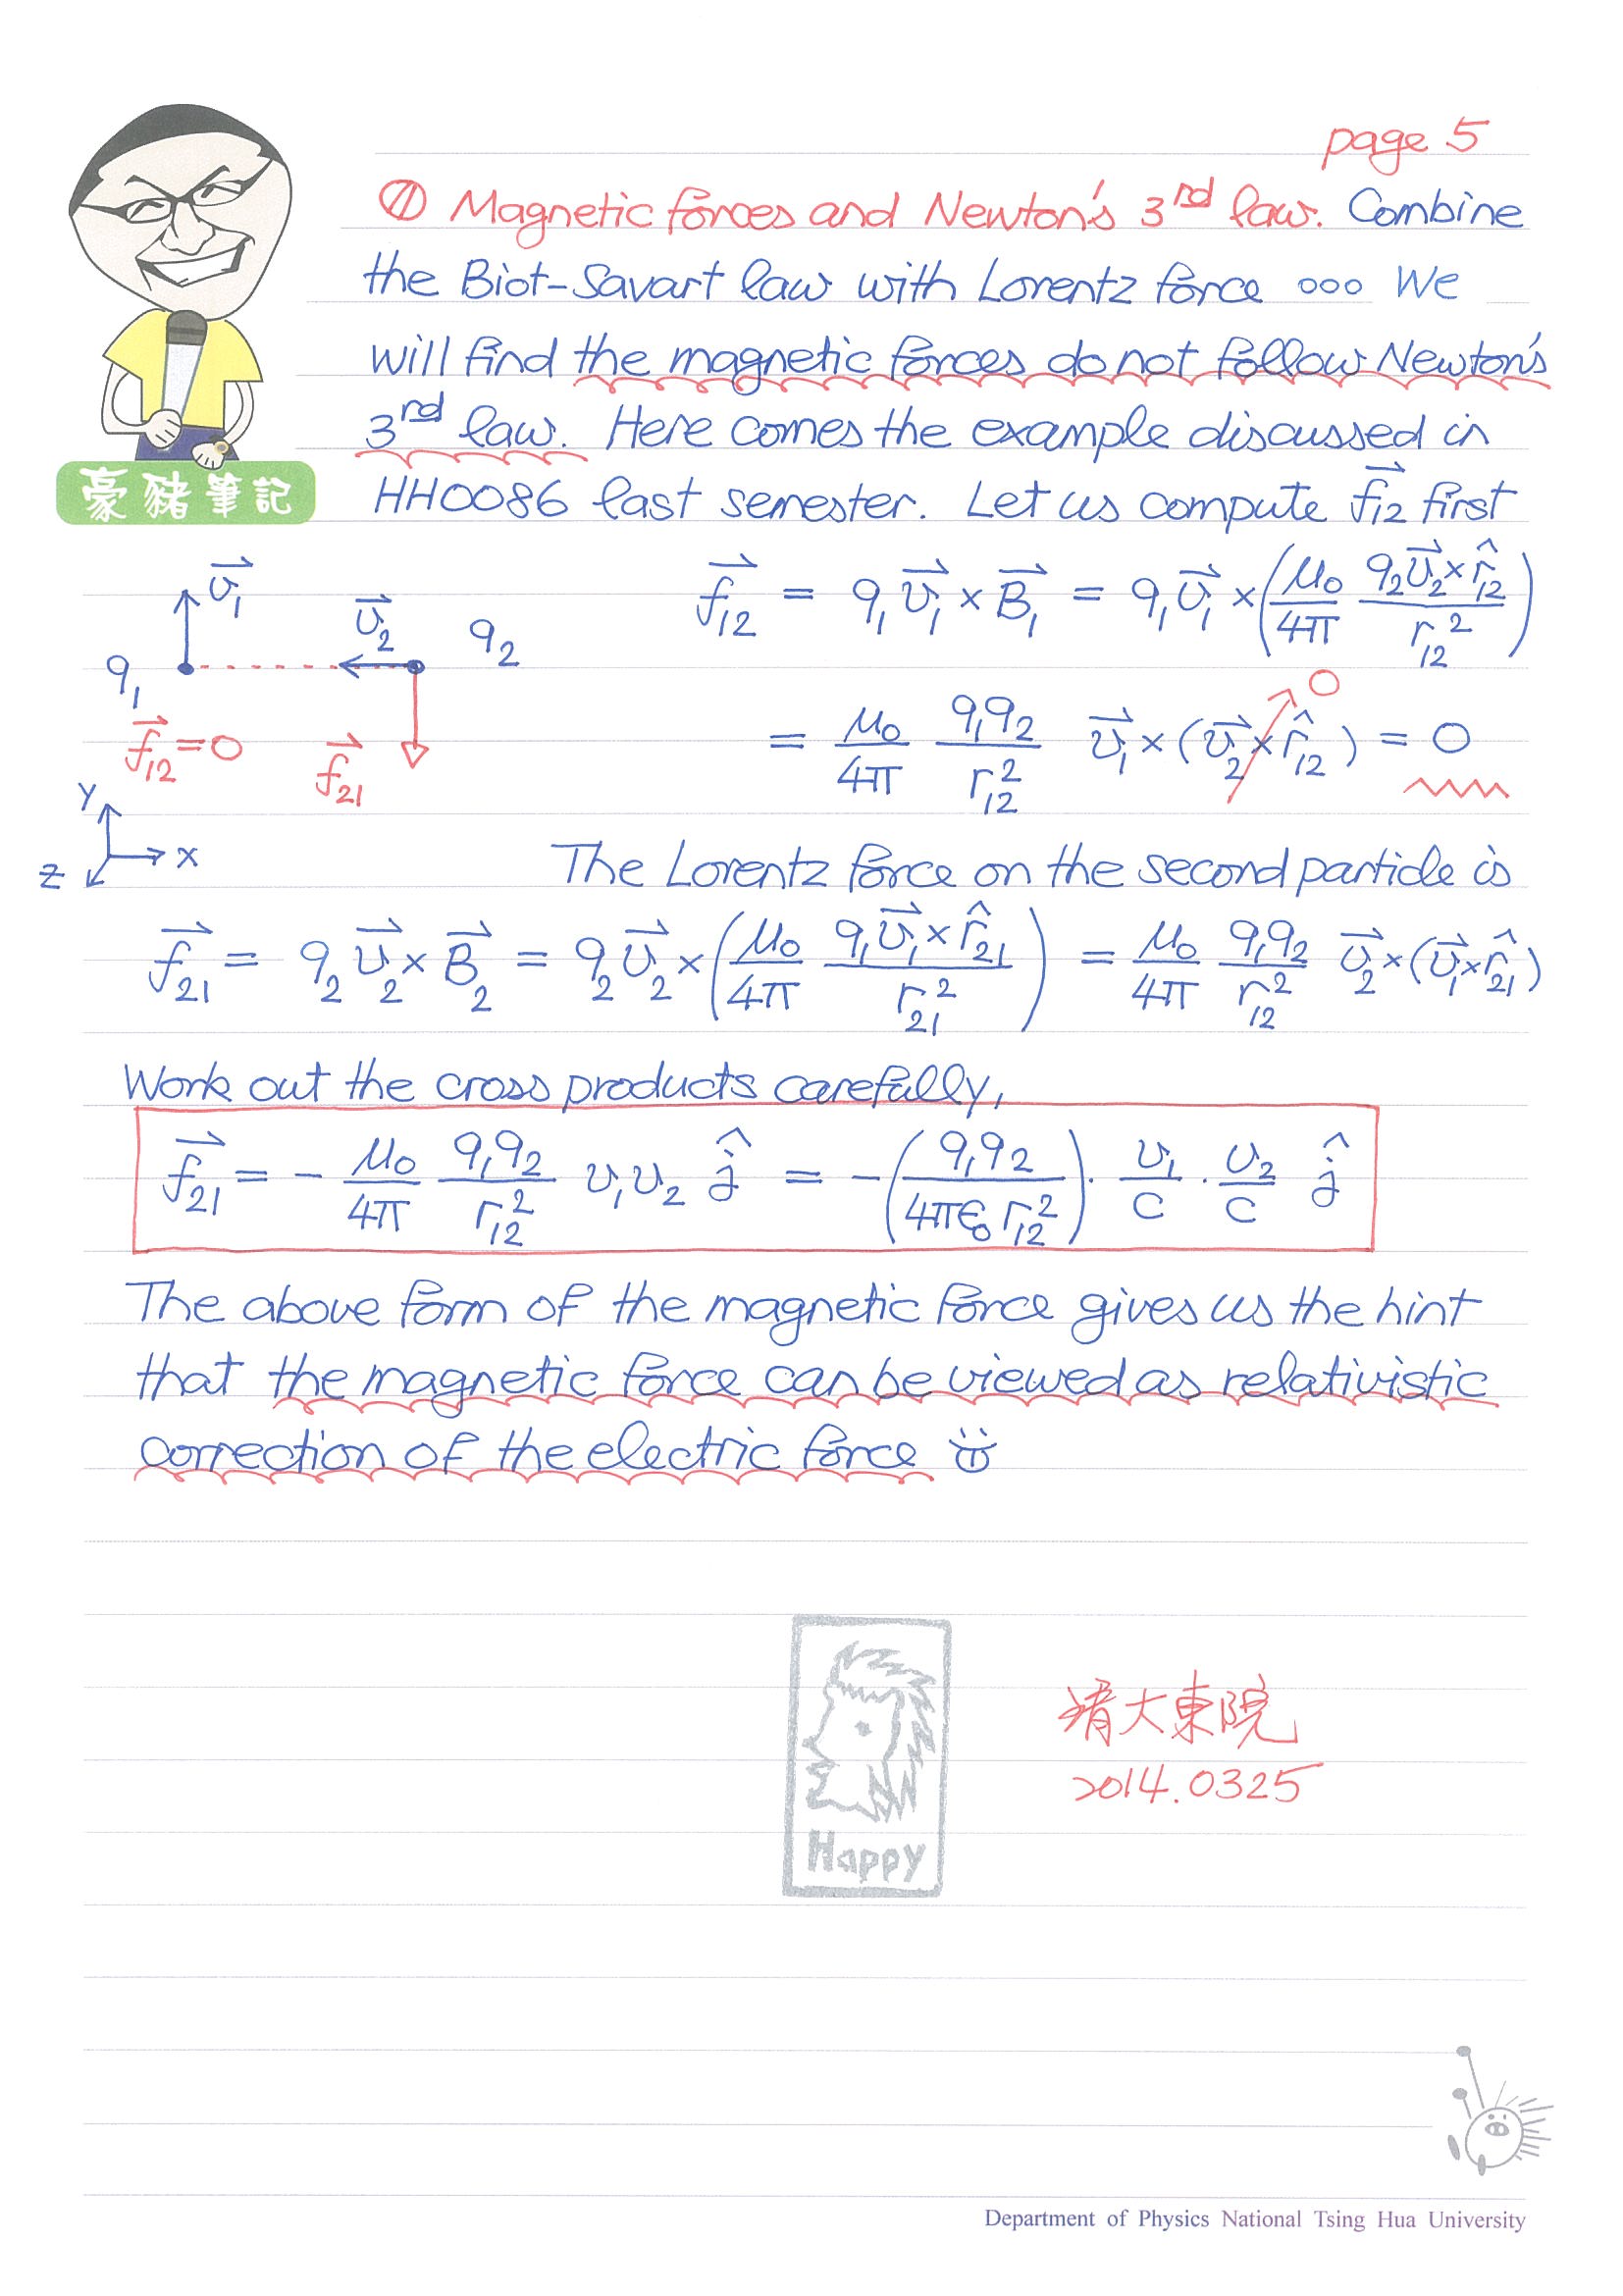 page 5
① Magnetic forces and Newton's 3rd law. Combine
the Biot-Savart law with Lorentz force ooo We
will find the magnetic forces do not follow Newton's
3rd law. Here comes the example discussed in
豪豬筆記
HH0086 last semester. Let us compute \vec{f}_{12} first
\vec{v}_1
\vec{v}_2
q_2
q_1
\vec{f}_{12} = 0
\vec{f}_{21}
\vec{f}_{12} = q_1 \vec{v}_1 × \vec{B}_1 = q_1 \vec{v}_1 × ( \frac{μ_0}{4π} \frac{q_2 \vec{v}_2 × \hat{r}_{12}}{r_{12}^2} )
= \frac{μ_0}{4π} \frac{q_1 q_2}{r_{12}^2} \vec{v}_1 × ( \vec{v}_2 × \hat{r}_{12} ) = 0
0
y
x
z
The Lorentz force on the second particle is
\vec{f}_{21} = q_2 \vec{v}_2 × \vec{B}_2 = q_2 \vec{v}_2 × ( \frac{μ_0}{4π} \frac{q_1 \vec{v}_1 × \hat{r}_{21}}{r_{21}^2} ) = \frac{μ_0}{4π} \frac{q_1 q_2}{r_{12}^2} \vec{v}_2 × ( \vec{v}_1 × \hat{r}_{21} )
Work out the cross products carefully,
\vec{f}_{21} = - \frac{μ_0}{4π} \frac{q_1 q_2}{r_{12}^2} v_1 v_2 \hat{j} = - ( \frac{q_1 q_2}{4πε_0 r_{12}^2} ) · \frac{v_1}{c} · \frac{v_2}{c} \hat{j}
The above form of the magnetic force gives us the hint
that the magnetic force can be viewed as relativistic
correction of the electric force
Happy
清大東院
2014.0325
Department of Physics National Tsing Hua University